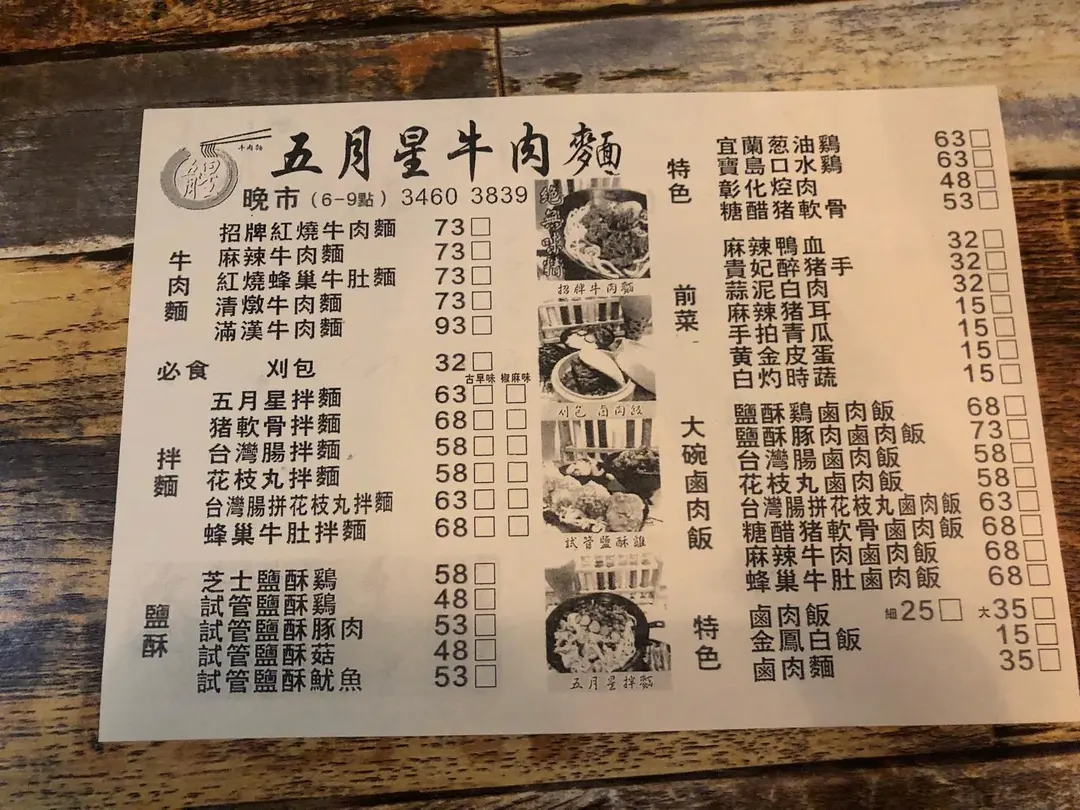 牛肉麵
五月星牛肉麵
晚市（6-9點）3460 3839
牛肉麵
招牌紅燒牛肉麵 73
麻辣牛肉麵 73
紅燒蜂巢牛肚麵 73
清燉牛肉麵 73
滿漢牛肉麵 93
必食 刈包 32
古早味 椒麻味
拌麵
五月星拌麵 63
猪軟骨拌麵 68
台灣腸拌麵 58
花枝丸拌麵 58
台灣腸拼花枝丸拌麵 63
蜂巢牛肚拌麵 68
鹽酥
芝士鹽酥鷄 58
試管鹽酥鷄 48
試管鹽酥豚肉 53
試管鹽酥菇 48
試管鹽酥魷魚 53
招牌牛肉麵
刈包 鹵肉飯
試管鹽酥雞
五月星拌麵
特色
宜蘭葱油鷄 63
寶島口水鷄 63
彰化焢肉 48
糖醋猪軟骨 53
前菜
麻辣鴨血 32
貴妃醉猪手 32
蒜泥白肉 32
麻辣猪耳 15
手拍青瓜 15
黃金皮蛋 15
白灼時蔬 15
大碗鹵肉飯
鹽酥鷄鹵肉飯 68
鹽酥豚肉鹵肉飯 73
台灣腸鹵肉飯 58
花枝丸鹵肉飯 58
台灣腸拼花枝丸鹵肉飯 63
糖醋猪軟骨鹵肉飯 68
麻辣牛肉鹵肉飯 68
蜂巢牛肚鹵肉飯 68
特色
鹵肉飯 細25 大35
金鳳白飯 15
鹵肉麵 35